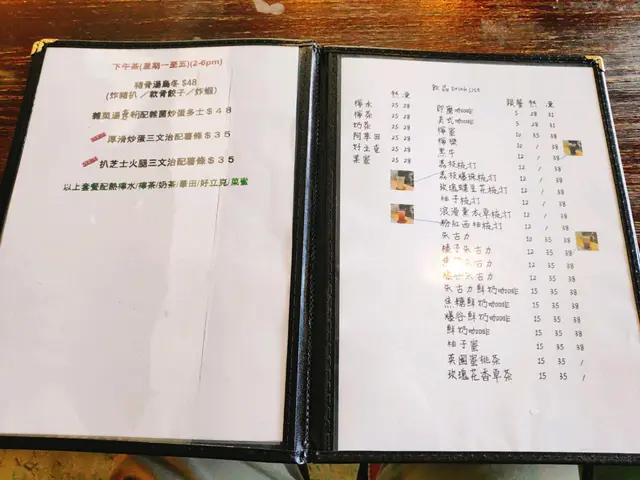 下午茶(星期一至五)(2-6pm)
豬骨湯烏冬 $48
(炸豬扒／軟骨餃子／炸蝦)
雜菜湯 粉配雜菌炒蛋多士 $48
厚滑炒蛋三文治配薯條 $35
扒芝士火腿三文治配薯條 $35
以上套餐配熱檸水/檸茶/奶茶/華田/好立克/菜蜜
飲品 Drink List
熱 凍
檸水 25 28
檸茶 25 28
奶茶 25 28
阿華田 25 28
好立克 25 28
菜蜜 25 28
跟餐 熱 凍
即磨咖啡 5 28 31
美式咖啡 5 28 31
檸蜜 10 35 38
檸樂 10 / 38
黑牛 12 /
荔枝梳打 10 / 38
荔枝爆珠梳打 12 / 38
玫瑰蝶豆花梳打 12 / 38
柚子梳打 12 / 38
浪漫薰衣草梳打 12 / 38
粉紅西柚梳打 12 / 38
朱古力 10 35 38
榛子朱古力 12 35 38
朱古力 12 35 38
朱古力 12 35 38
朱古力鮮奶咖啡 15 35 38
焦糖鮮奶咖啡 15 35 38
爆谷鮮奶咖啡 15 35 38
鮮奶咖啡 15 35 38
柚子蜜 15 35 38
英國蜜桃茶 15 35 /
玫瑰花香草茶 15 35 /